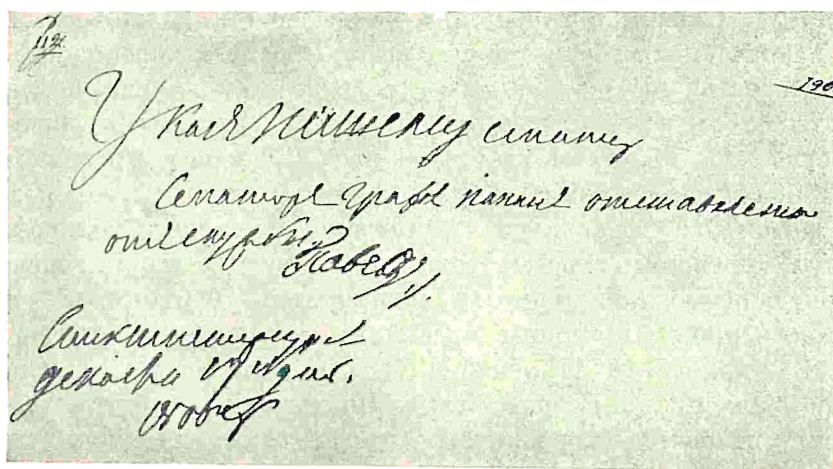 190
Указъ нашему сенату
Сенаторъ графъ панинъ отставленъ
отъ службы.
Павелъ
Санктпетербургъ
декабря 17 дня.
1800 г.